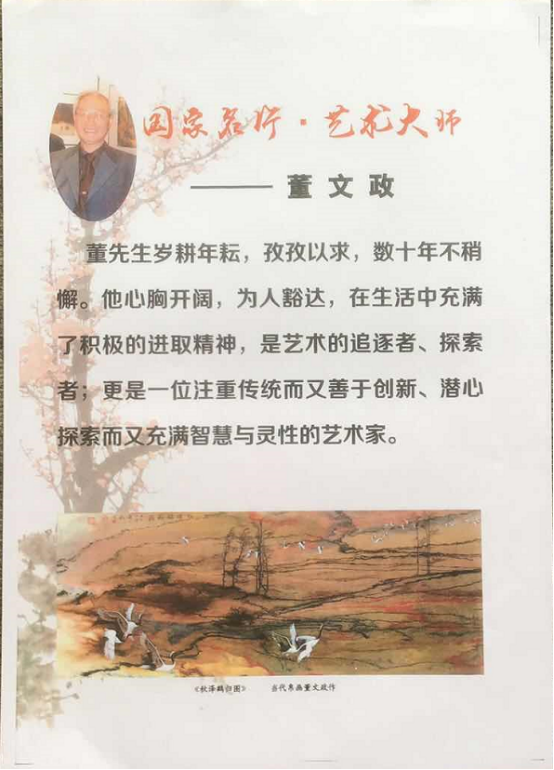 国家名片·艺术大师
—— 董文政
董先生岁耕年耘，孜孜以求，数十年不稍
懈。他心胸开阔，为人豁达，在生活中充满
了积极的进取精神，是艺术的追逐者、探索
者；更是一位注重传统而又善于创新、潜心
探索而又充满智慧与灵性的艺术家。
《秋泽鹤归图》 当代布画董文政作